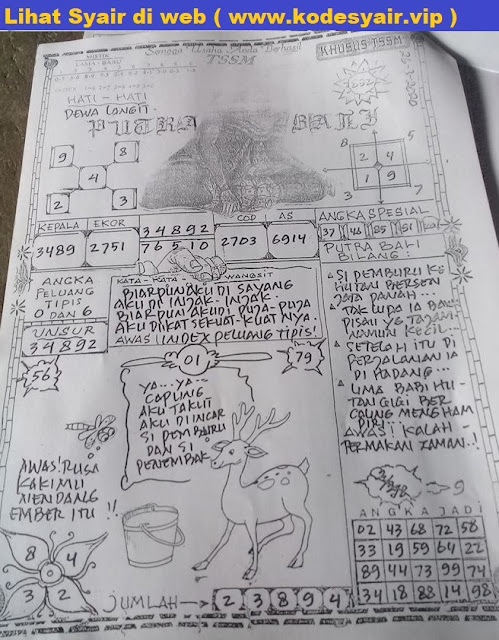 Lihat Syair di web ( www.kodesyair.vip )
Semoga Usaha Anda Berhasil
TSSM
KHUSUS TSSM
MISTIK
LAMA - BARU
HATI - HATI
DEWA LANGIT
PUTRA BALI
9 8
4
2 3
8 5
2 4
1 9
3 7
KEPALA EKOR
3489 2751
34892
76510
COD AS
2703 6914
ANGKA SPESIAL
37 46
PUTRA BALI
BILANG:
ANGKA
PELUANG
TIPIS
0 DAN 6
UNSUR
34892
56
KATA - KATA WANGSIT
BIARPUN AKU DI SAYANG
AKU DI INJAK - INJAK.
BIARPUN AKU DI PUJA - PUJA
AKU DIIKAT SEKUAT - KUAT NYA.
AWAS! INDEX PELUANG TIPIS!
01
79
SI PEMBURU KE
HUTAN BERSEN
JATA PANAH...
TAK LUPA IA BAWA
PISAU YG TAJAM
NAMUN KECIL..
SETELAH ITU DI
PERJALANAN IA
DI PADANG...
LIMA BABI HU-
TAN GIGI BER
CAUNG MENGHAM
PIRI
AWAS! KALAH
PERMAKAN ZAMAN..!
YA... YA...
CAPUNG
AKU TAKUT
AKU DI INCAR
SI PEMBURU
DAN SI
PENEMBAK
AWAS! RUSA
KAKIMU
NENDANG
EMBER ITU !!
9
8 4
3 2
JUMLAH → 2 3 8 9 4
ANGKA JADI
02 43 68 72 58
33 19 59 64 22
89 44 73 99 74
34 18 88 14 98